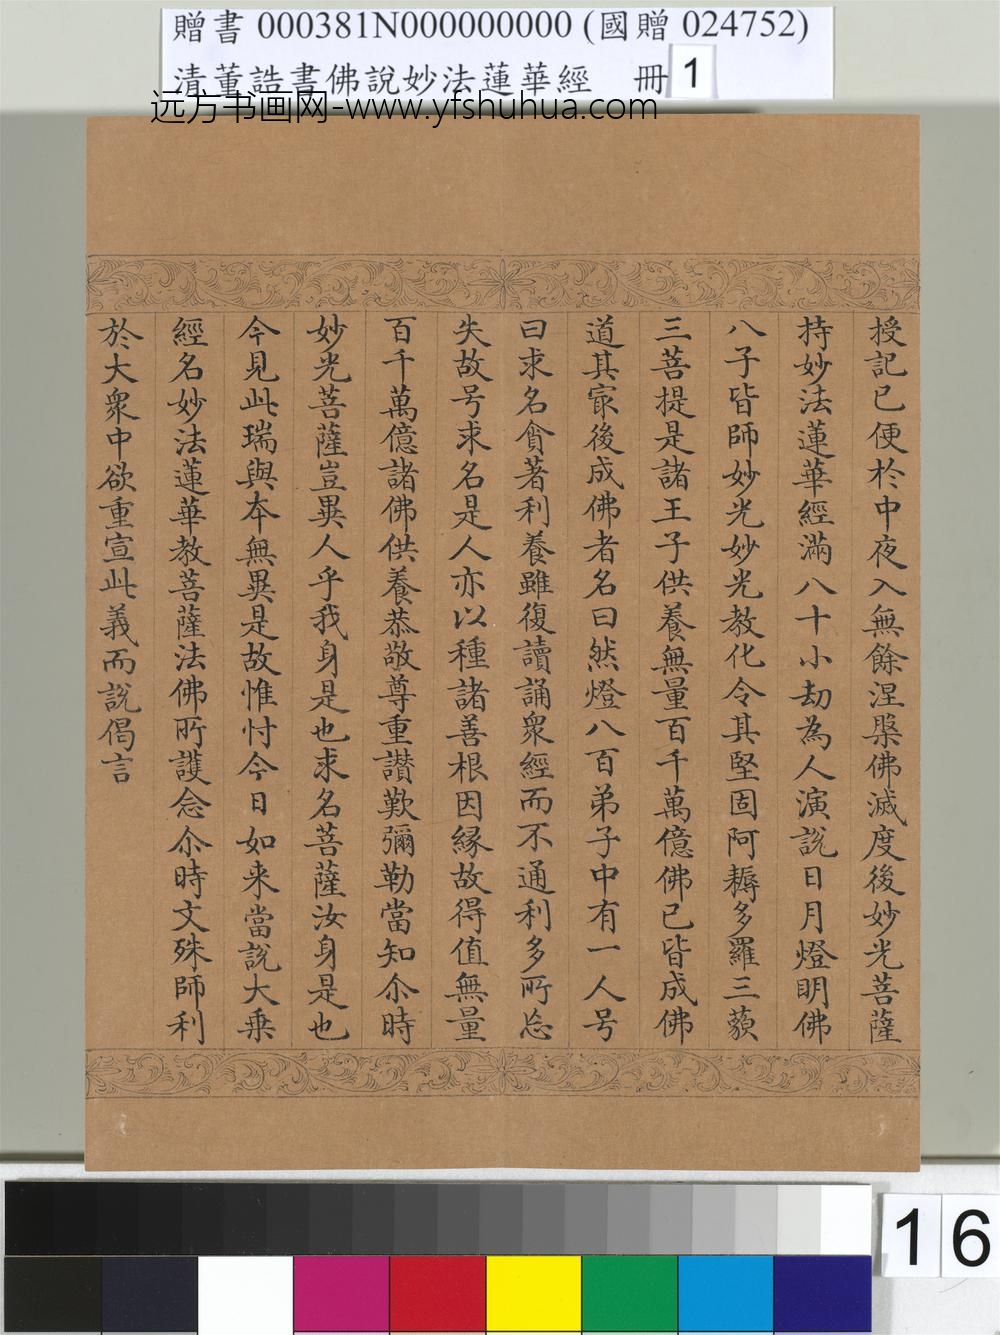 贈書 000381N000000000 (國贈 024752)
清董誥書佛說妙法蓮華經 冊 1
远方书画网-www.yfshuhua.com
授記已便於中夜入無餘涅槃佛滅度後妙光菩薩
持妙法蓮華經滿八十小劫為人演說日月燈明佛
八子皆師妙光妙光教化令其堅固阿耨多羅三藐
三菩提是諸王子供養無量百千萬億佛已皆成佛
道其㝡後成佛者名曰然燈八百弟子中有一人号
曰求名貪著利養雖復讀誦衆經而不通利多所忘
失故号求名是人亦以種諸善根因緣故得值無量
百千萬億諸佛供養恭敬尊重讚歎彌勒當知尒時
妙光菩薩豈異人乎我身是也求名菩薩汝身是也
今見此瑞與本無異是故惟忖今日如来當說大乗
經名妙法蓮華教菩薩法佛所護念尒時文殊師利
於大衆中欲重宣此義而說偈言
16